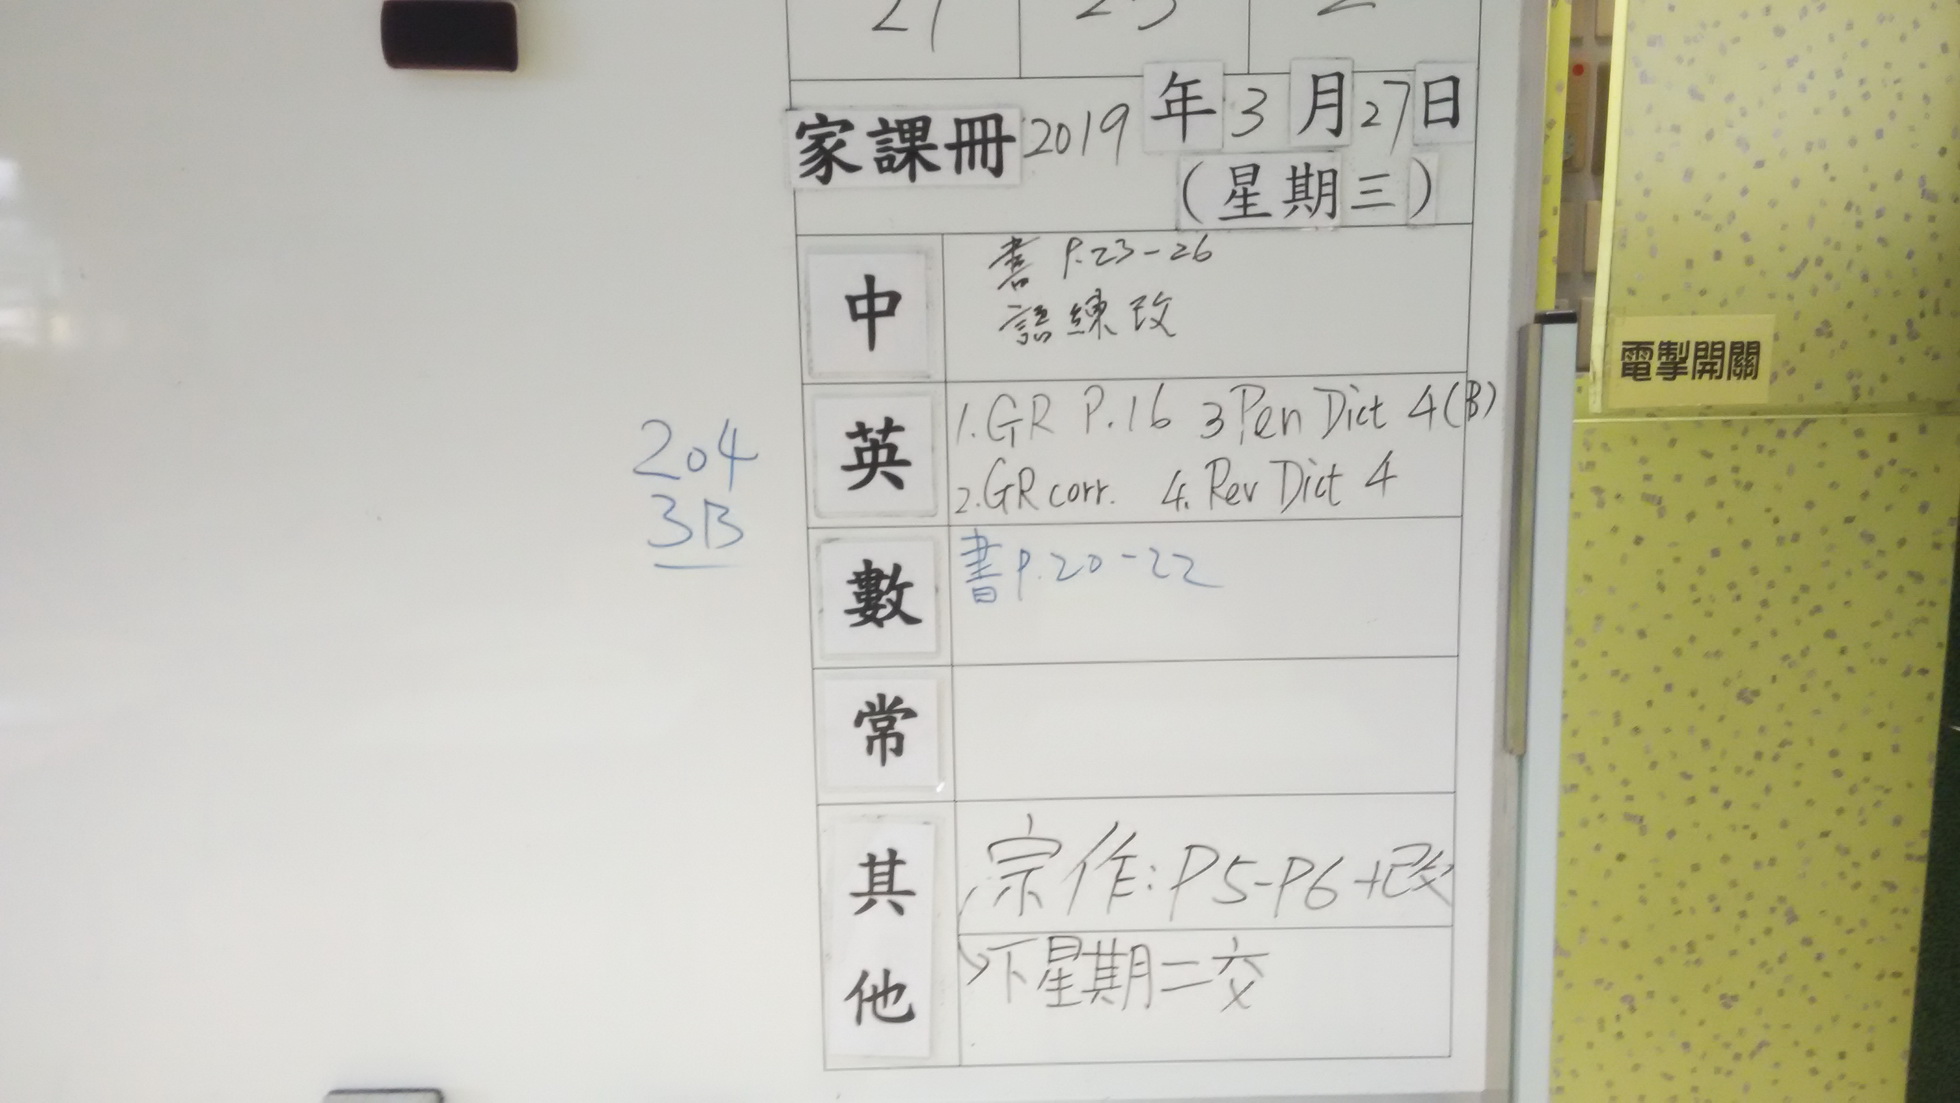 家課冊 2019 年 3 月 27 日
(星期三)
中
書 P.23-26
語練改
英
1.GR P.16 3.Pen Dict 4(B)
2.GR corr. 4. Rev Dict 4
數
書 P.20-22
常
其他
宗作: P5-P6+改
下星期二交
204
3B
電掣開關